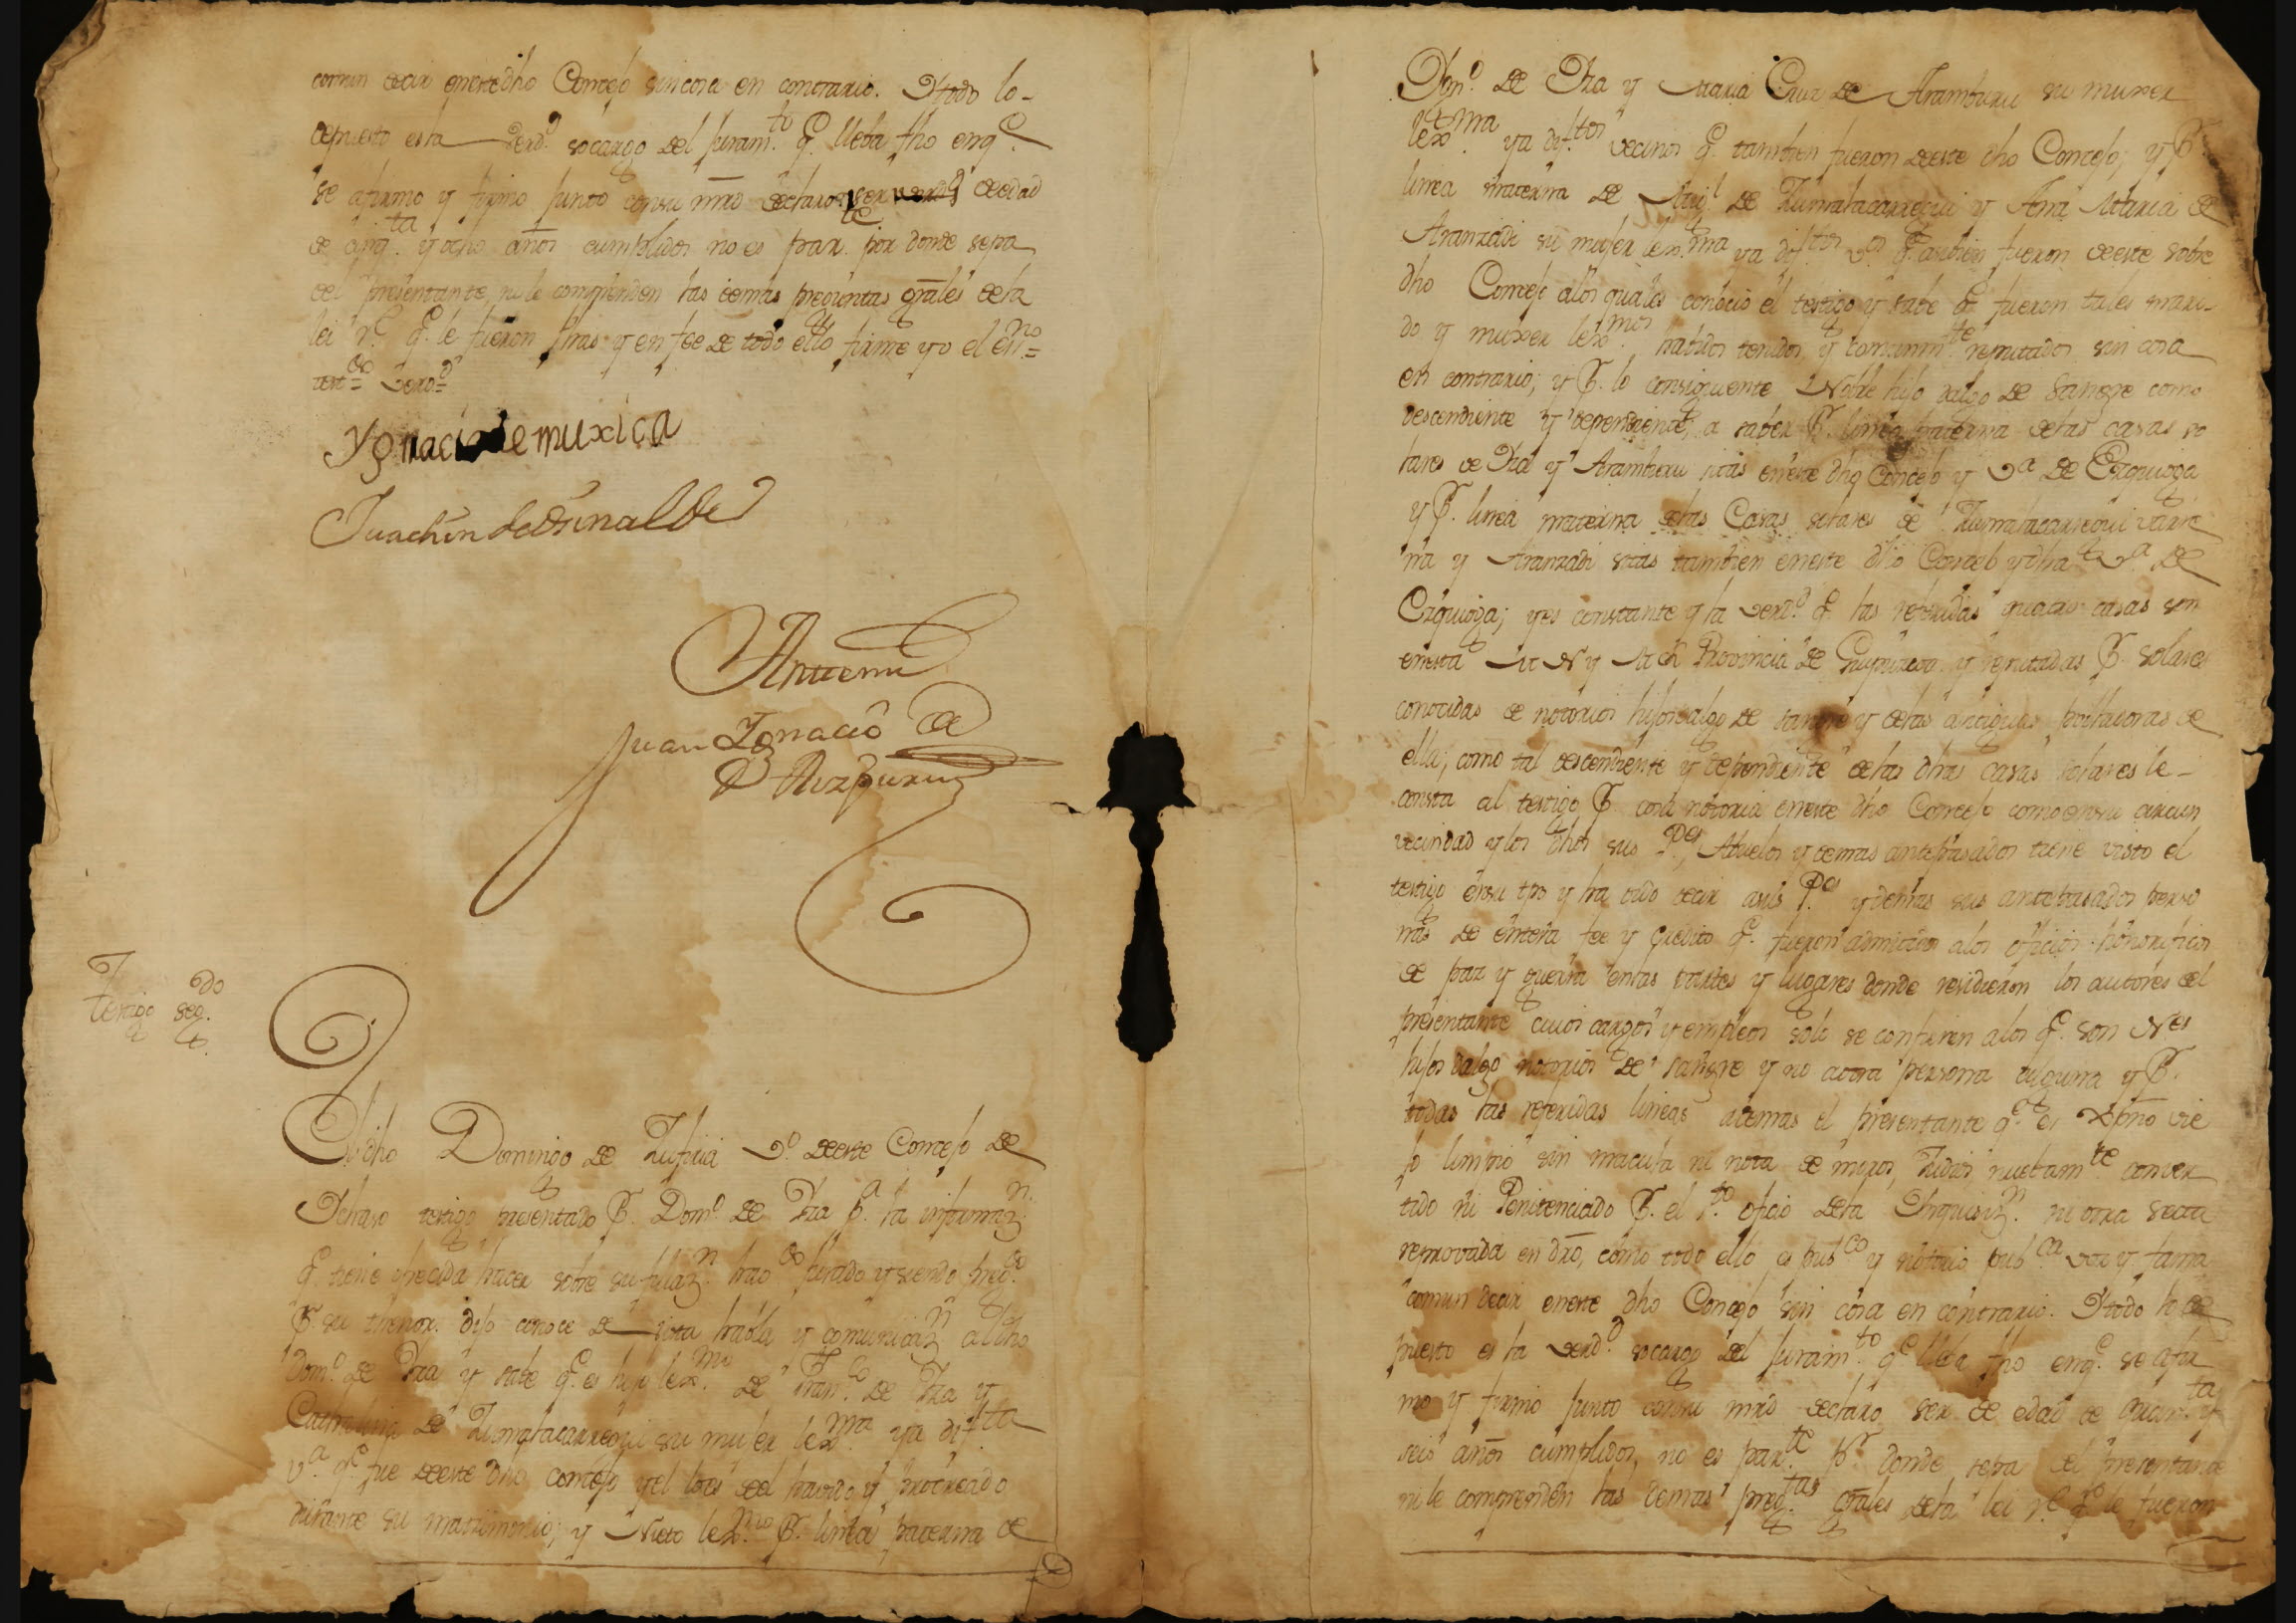 comun decir en este dho Concejo sin cosa en contrario. Y todo lo
depuesto es la verd.d so cargo del juram.to q.e lleba fho en q.e
se afirmo y firmo junto con su mrd declaro ser verd.d de edad
de cinq.ta y ocho años cumplidos no es par.te por donde sepa
del presentante, ni le comprenden las demas preguntas grāles dela
lei r.l q.e le fueron hras y en fee de todo ello firme yo el en.no=
test.do= verd.d=
Ygnacio de muxica
Juachin de
Antemi
Juan Ygnacio de
Aizpuru
Testigo seg.do
El dho Domingo de Zufiria v.o de este Concejo de
Ichaso testigo presentado P. Dom.o de Ira p.a la informaz.n
q.e tiene ofrecida hacer sobre su filiaz.n hav.do jurado y siendo preg.do
P. su thenor. dijo conoce de vista habla y comunicaz.n al dho
Dom.o de Ira y sabe q.e es hijo lex.mo de Fran.co de Ira y
Cathalina de Zumalacarregui su mujer lex.ma ya dif.ta
v.a q.e fue de este dho concejo y el lo es del havido y procreado
durante su matrimonio; y Nieto lex.mo P. linea paterna de
Dom.o de Ira y Maria Cruz de Aramburu su muxer
lex.ma ya dif.tos vecinos q.e tambien fueron de este dho Concejo; y P.
linea materna de Mig.l de Zumalacarregui y Ana Maria de
Aranzadi su mujer lex.ma ya dif.tos v.os q.e tambien fueron de este sobre
dho Concejo alos quales conocio el testigo y sabe q.e fueron tales mari-
do y muxer lex.mos habidos tenidos y comunm.te reputados sin cosa
en contrario; y P. lo consiguiente Noble hijo dalgo de sangre como
descendiente y dependiente, a saber P. linea paterna delas casas so
lares de Ira y Aramburu sitas en este dho Concejo y v.a de Ezquioga
y P. linea materna delas Casas solares de Zumalacarregui
na y Aranzadi sitas tambien en este dho Concejo y dha v.a de
Ezquioga; y es constante y la verd.d q.e las referidas quatro casas son
en esta M N y M L Provincia de Guipuzcoa y reputadas P. solares
conocidas de notorios hijos dalgo de sangre y delas antiguas pobladoras de
ella; como tal descendiente y dependiente delas dhas casas solares le
consta al testigo P. cosa notoria en este dho Concejo como en su circun
vecindad y los dhos sus P.es, Abuelos y demas antepasados tiene visto el
testigo en su tpo y ha oido decir a sus P.es y demas sus antepasados perso
nas de entera fee y credito q.e fueron admitidos alos oficios honorificos
de paz y guerra en las partes y lugares donde residieron los autores del
presentante cuios cargos y empleos solo se confieren alos q.e son N.es
hijos dalgo notorios de sangre y no a otra persona alguna y P.
todas las referidas lineas ademas el presentante q.e es Xpno vie
jo limpio sin macula ni nota de moros, Judios nuebam.te conver
tido ni Penitenciado P. el S.to oficio dela Inquisiz.n ni otra secta
reprovada en dro, como todo ello es pub.co y notorio pub.ca voz y fama
comun decir en este dho Concejo sin cosa en contrario. Y todo lo de
puesto es la verd.d so cargo del juram.to q.e lleba fho en q.e se afir
mo y firmo junto con su mrd declaro ser de edad de y
seis años cumplidos, no es par.te p.r donde sepa del presentante
ni le comprenden las demas preg.tas grāles dela lei r.l q.e le fueron